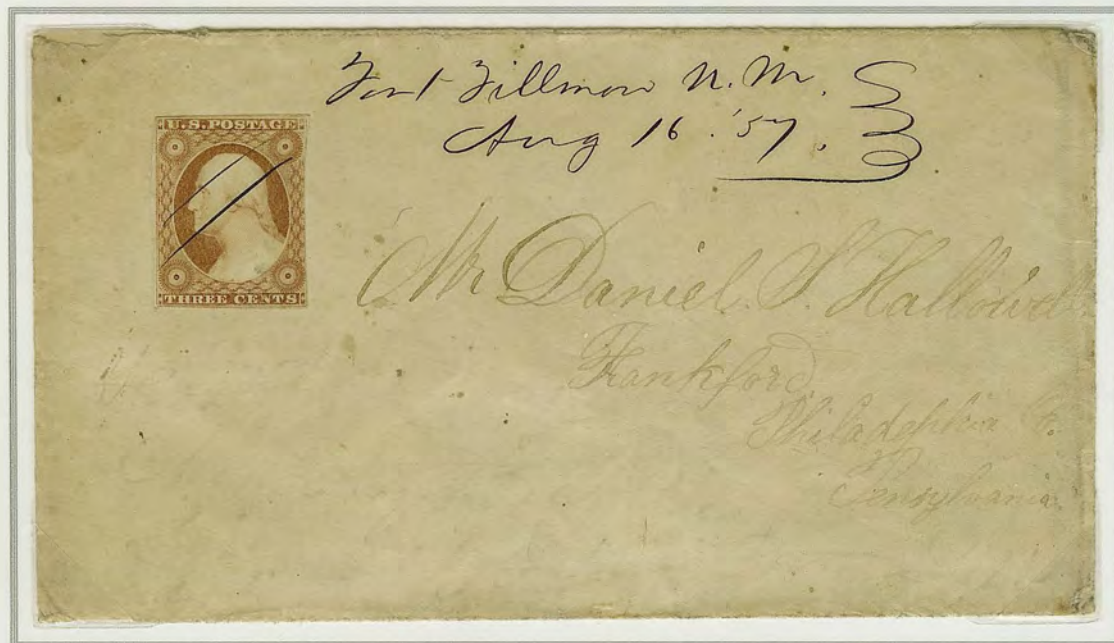 Fort Fillmore N. M.
Aug 16. '57.
U.S. POSTAGE
THREE CENTS
Mr Daniel S Hallowell
Frankford
Philadelphia Co.
Pensylvania